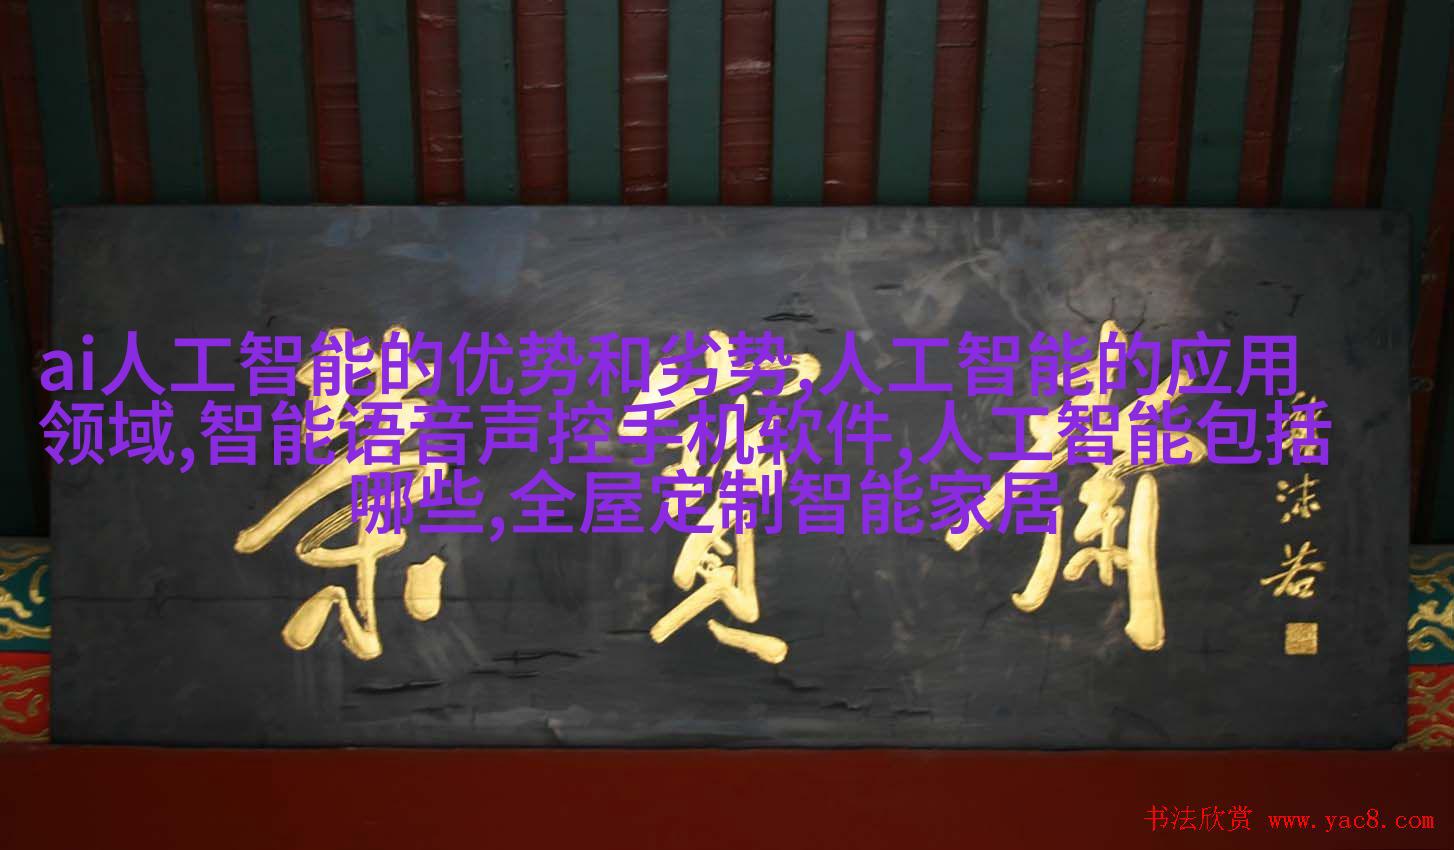 ai人工智能的优势和劣势,人工智能的应用
领域,智能语音声控手机软件,人工智能包括
哪些,全屋定制智能家居
榮寶齋
沫若
书法欣赏 www.yac8.com